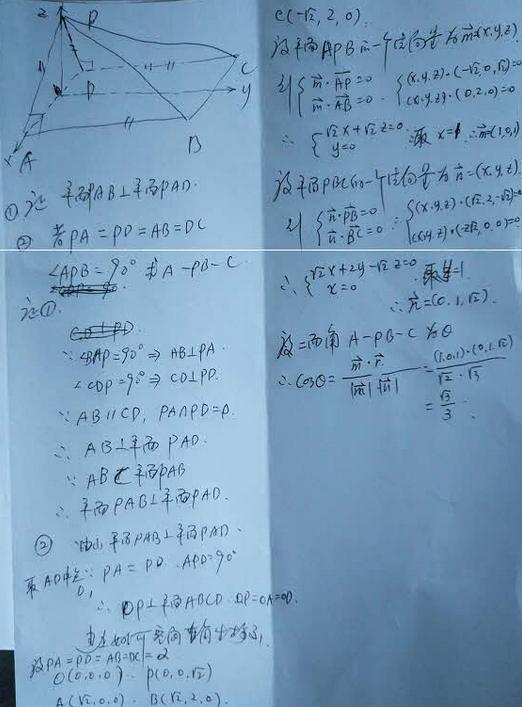 z
P
D
C
y
x
A
B
① 证 平面PAB⊥平面PAD.
② 若PA=PD=AB=DC
∠APB=90° 求A-PB-C.
证①
∵ ∠BAP=90° ⇒ AB⊥PA.
∠CDP=90° ⇒ CD⊥PD.
∵ AB∥CD, PA∩PD=P.
∴ AB⊥平面PAD.
∵ AB⊂平面PAB
∴ 平面PAB⊥平面PAD.
② 由①平面PAB⊥平面PAD.
取AD中点O, ∵ PA=PD. APD=90°
∴ OP⊥平面ABCD. OP=OA=OD.
设PA=PD=AB=DC=2
O(0,0,0). P(0,0,√2)
A(√2,0,0). B(√2,2,0).
C(-√2,2,0).
设平面APB的一个法向量为m=(x,y,z).
则{m·AP=0 m·AB=0. {(x,y,z)·(-√2,0,√2)=0 (x,y,z)·(0,2,0)=0
∴ {√2x+√2z=0. y=0 取x=1. ∴m=(1,0,1)
设平面PBC的一个法向量为n=(x,y,z).
则{n·PB=0 n·BC=0 ∴{(x,y,z)·(√2,2,-√2)=0 (x,y,z)·(-2√2,0,0)=0
∴ {√2x+2y-√2z=0 x=0 取y=1.
∴ n=(0,1,√2).
设二面角 A-PB-C 为θ
∴ cosθ= m·n / |m|·|n| = (1,0,1)·(0,1,√2) / √2·√3
= √3/3.